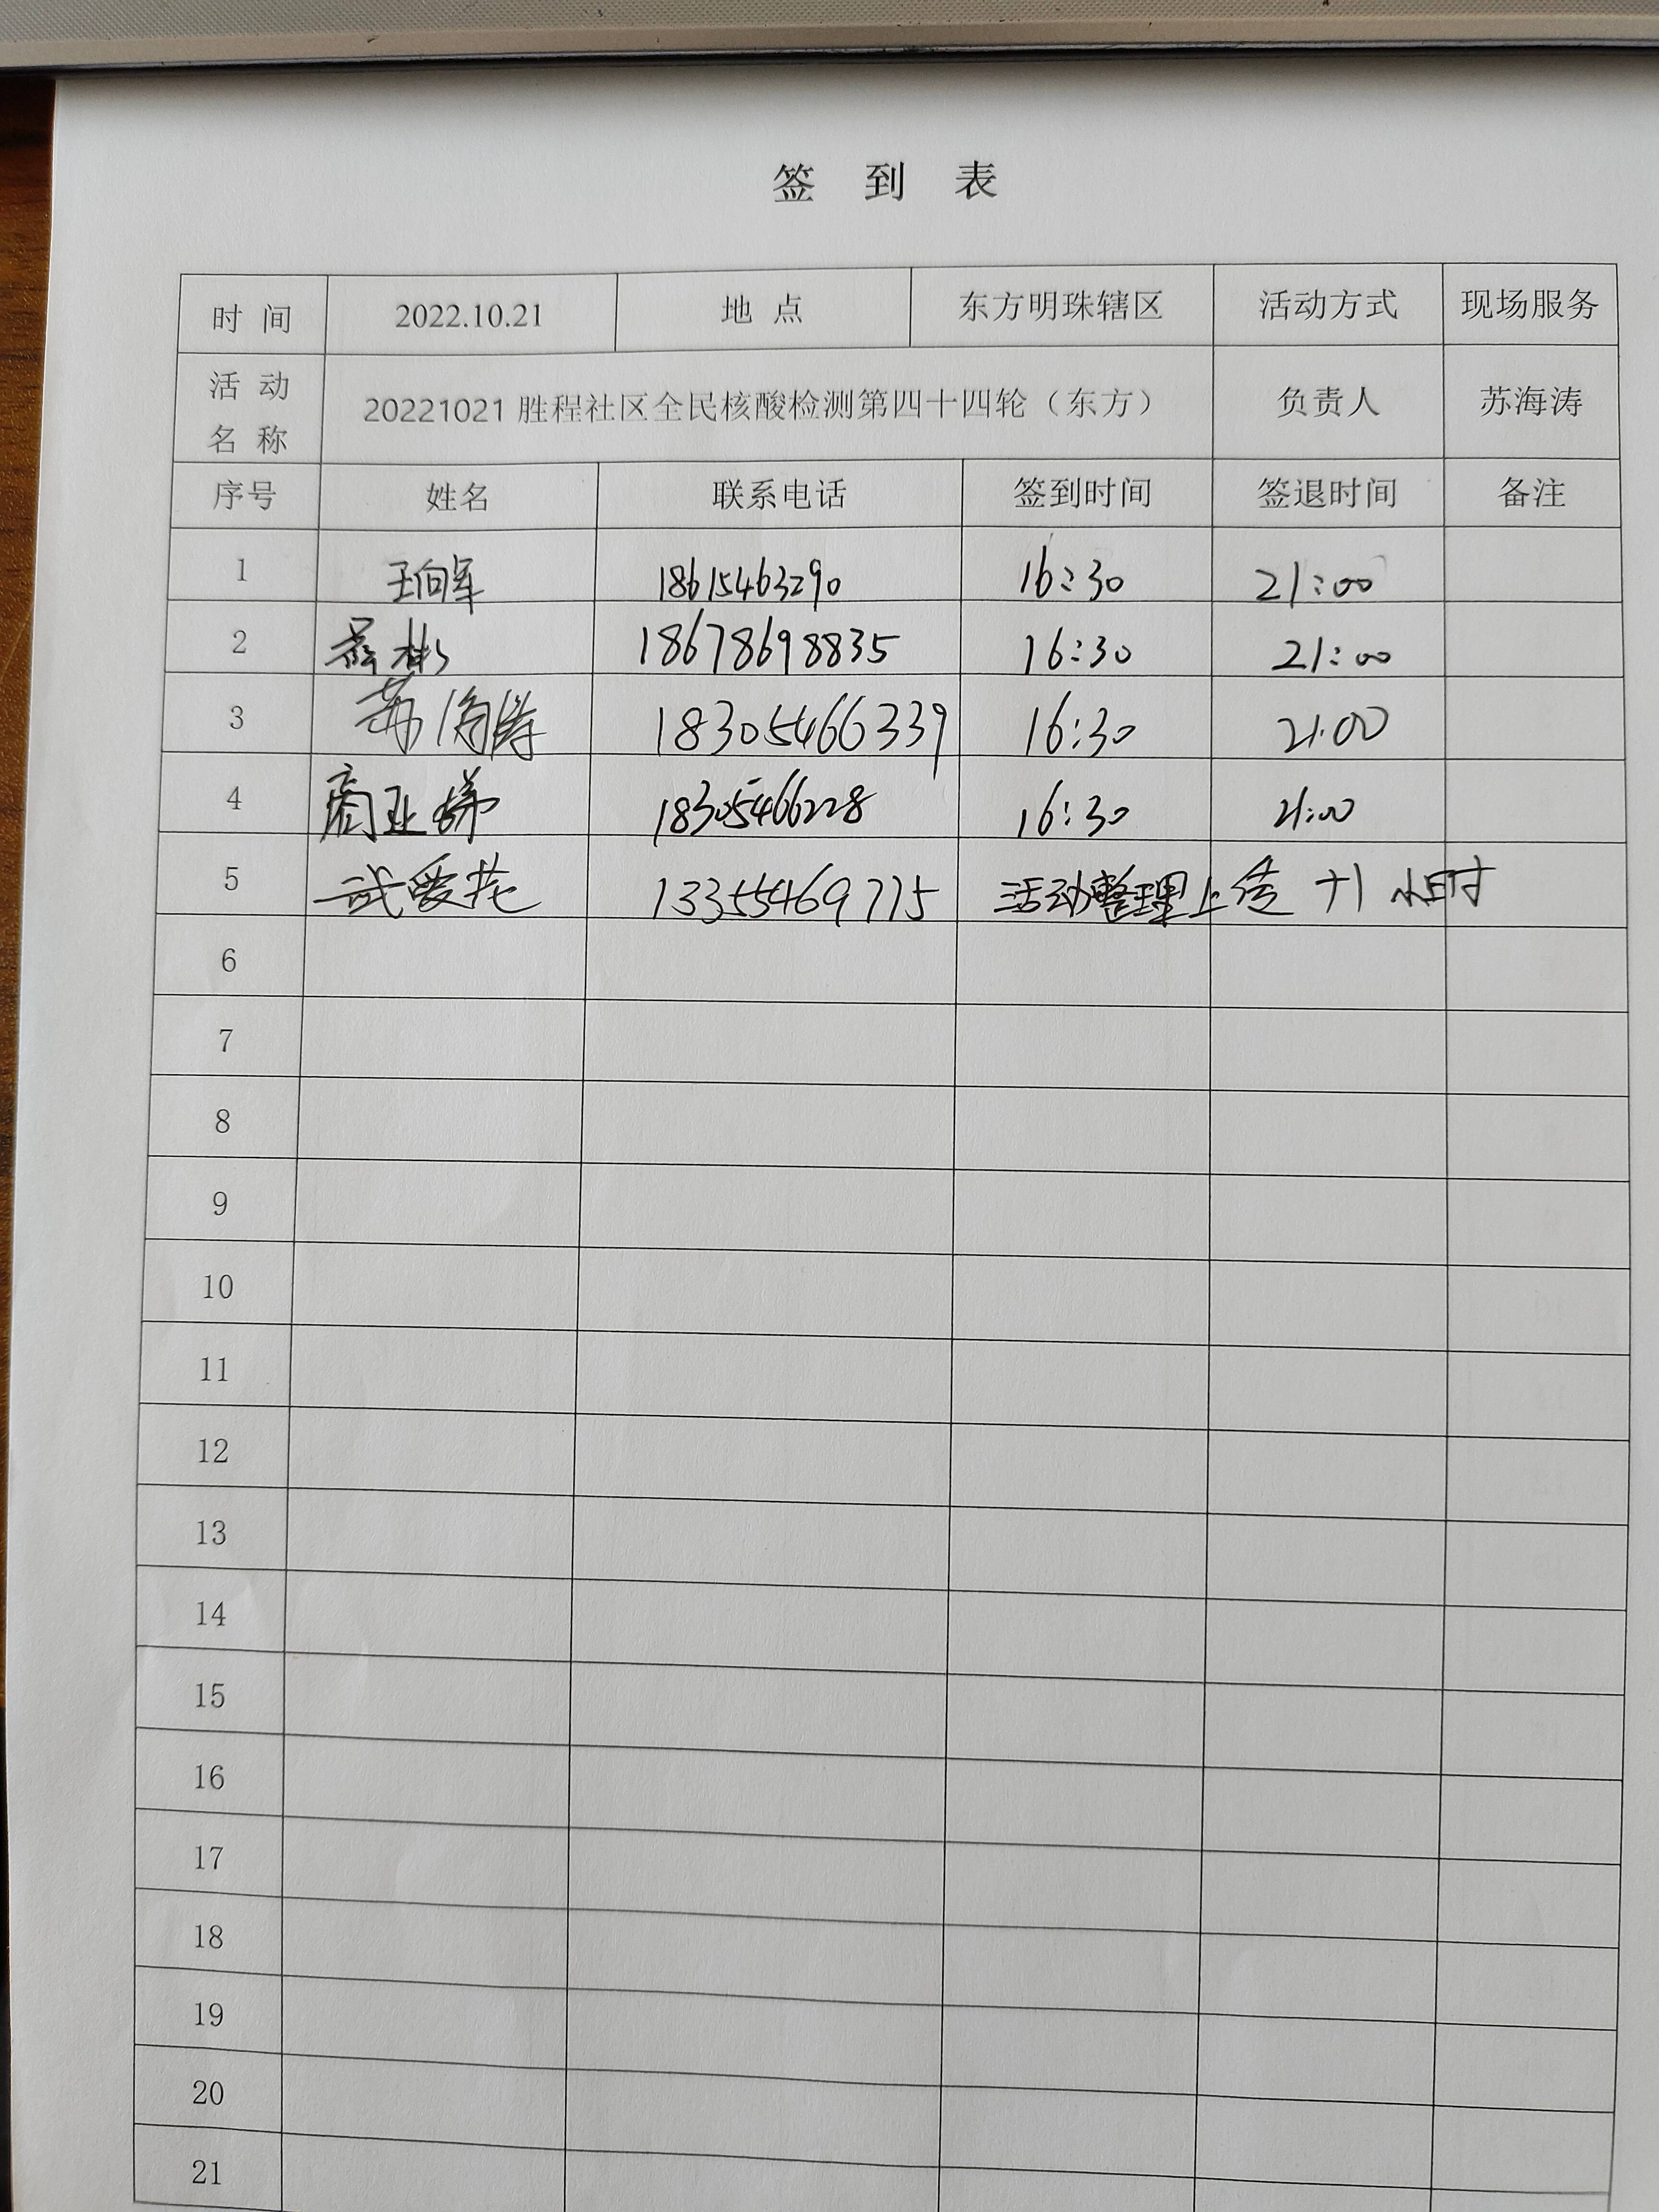 签 到 表
时 间 2022.10.21 地 点 东方明珠辖区 活动方式 现场服务
活 动 名 称 20221021 胜程社区全民核酸检测第四十四轮（东方） 负责人 苏海涛
序号 姓名 联系电话 签到时间 签退时间 备注
1 王向军 18615463290 16:30 21:00
2 18678698835 16:30 21:00
3 苏海涛 18305466339 16:30 21:00
4 商亚娣 18305466228 16:30 21:00
5 武爱花 13355469715 活动整理上传 +1 小时
6
7
8
9
10
11
12
13
14
15
16
17
18
19
20
21